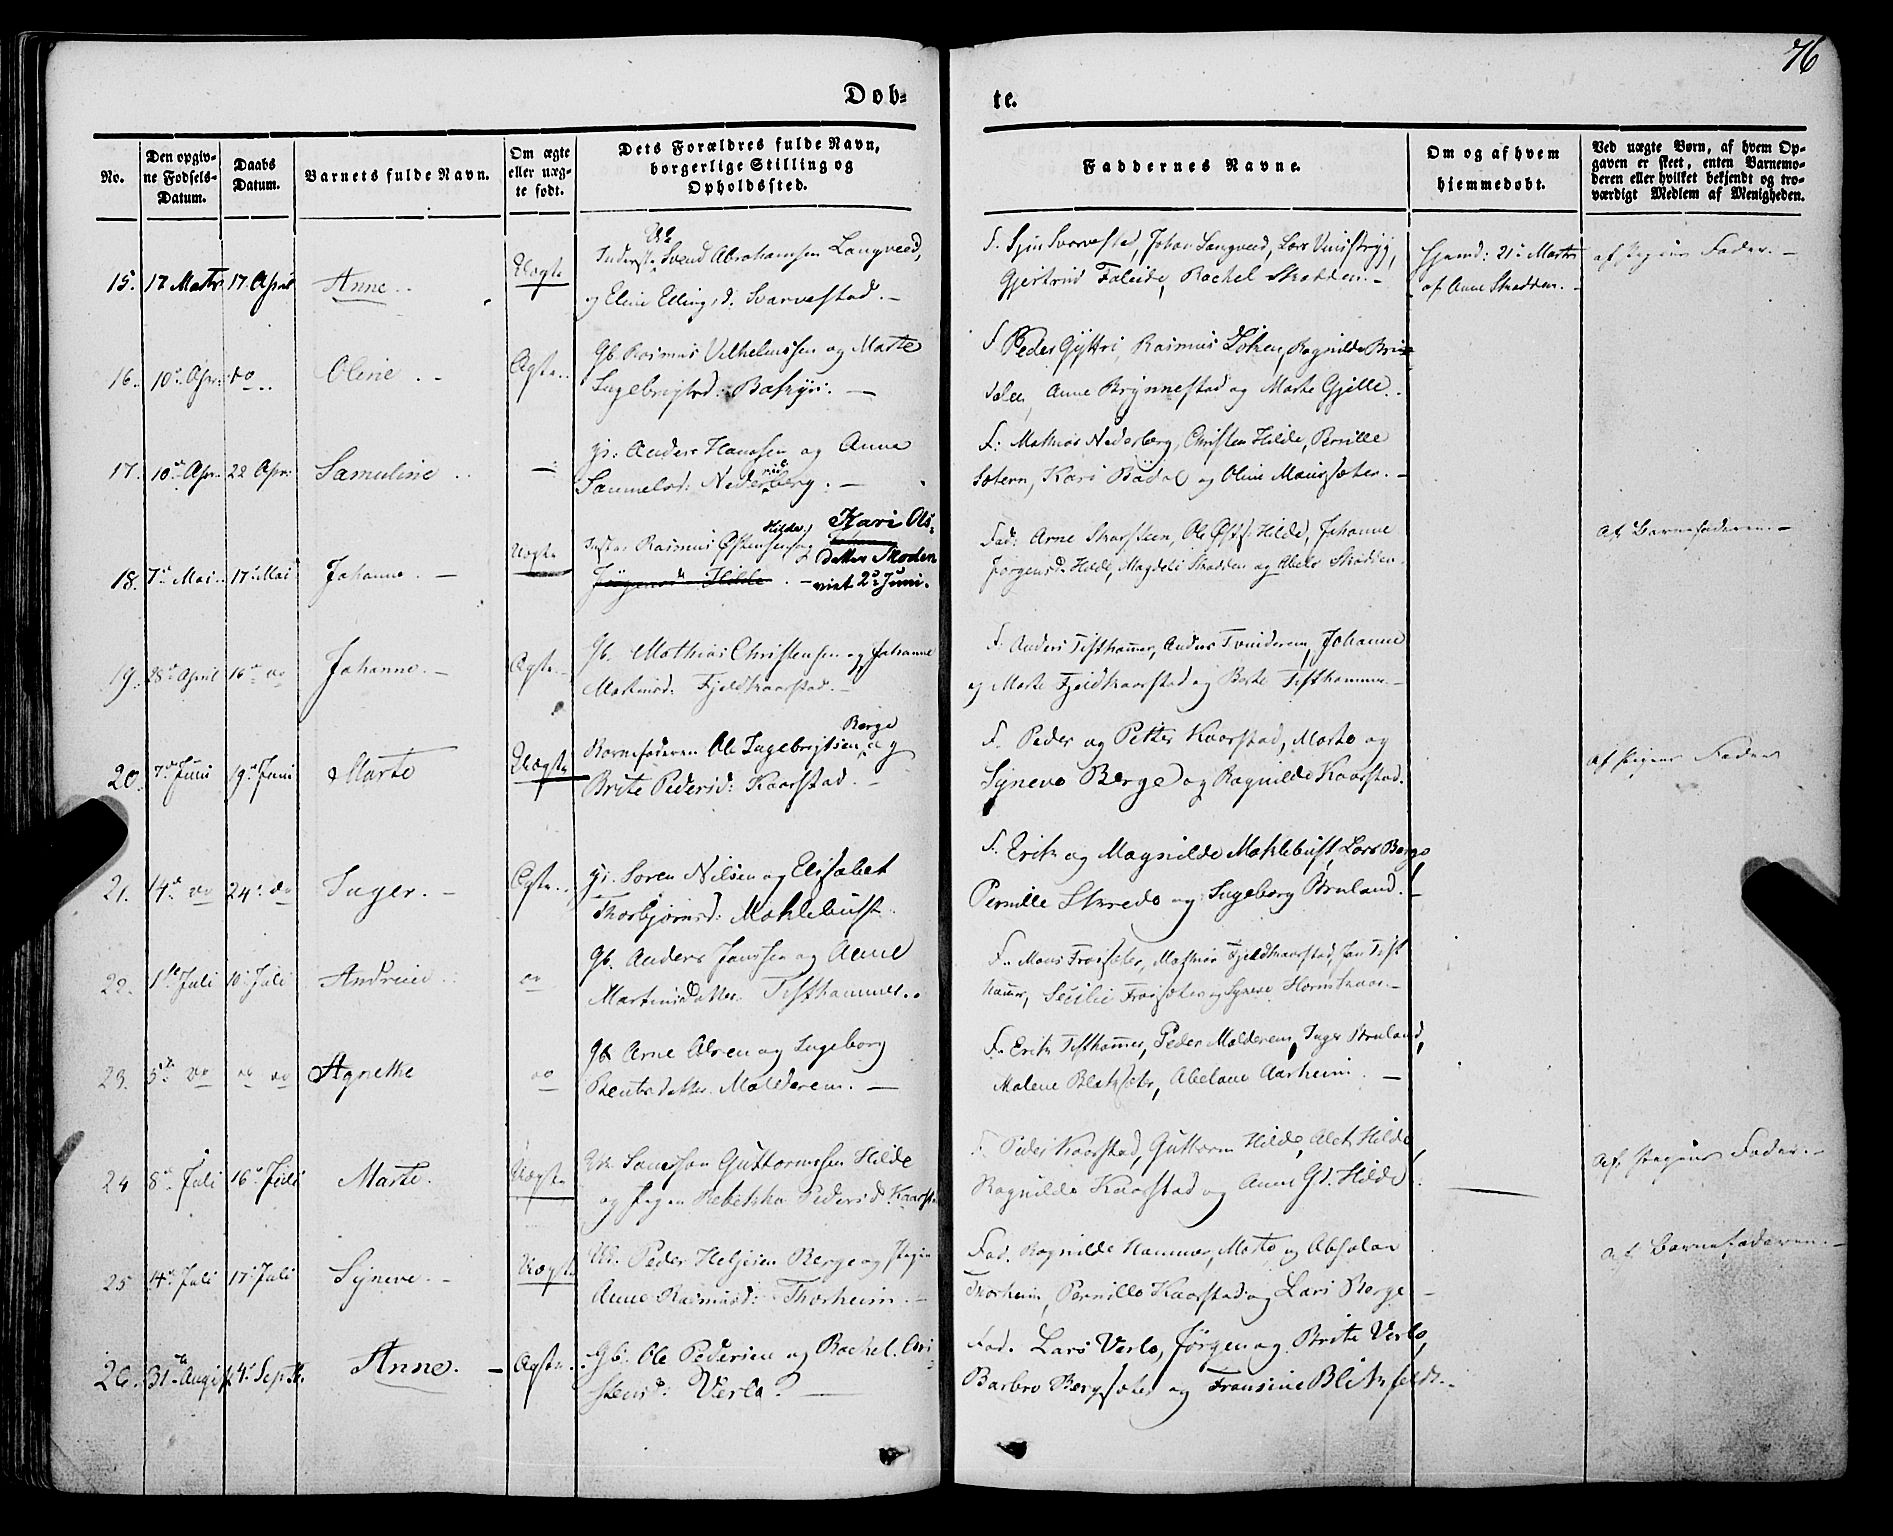 76
Døb-
te.
No.
Den opgiv-
ne Fødsels-
Datum.
Daabs
Datum.
Barnets fulde Navn.
Om ægte
eller uæg-
te født.
Dets Forældres fulde Navn,
borgerlige Stilling og
Opholdssted.
Faddernes Navne.
Om og af hvem
hjemmedøbt.
Ved uægte Børn, af hvem Op-
gaven er skeet, enten Barnemo-
deren eller hvilket bekjendt og tro-
værdigt Medlem af Menigheden.
15. 17 Marts 17 April Anne. Uægte
Svend Abrahamsen Langveed,
og Eline Ellingsd: Svarvestad.
F. Svarvestad, Johan Langveed, Lars
Gjertrud Faleide, Rachel Skadden.
Hjemd: 21. Marts
af Anne Skadden.
af Pigens Fader.
16. 10. Apr: do Oline. Ægte.
Gb Rasmus Vilhelmssen og Marte
Ingebrigtsd:
F. Peder Gyttri, Rasmus Loken, Ragnilde Brix-
dalen, Anne Brynnestad og Marte Gjelle.
17. 10de Apr. 22 Apr: Samuline
Anders Hanssen og Anne
Samuelsd: Nedreberg.
F: Mathias Nedreberg, Christen Hilde, Pernille
Sætern, Kari Bødal og Oline
18. 7de Mai 17. Mai Johanne. Uægte
Rasmus Østensen Hilde og Kari Ols-
datter Skoden
viet 2. Juni.
Jørgensd: Hilde
Fad: Arne Skarsteen, Ole Østs: Hilde, Johanne
Jørgensd: Hilde, Magdeli Skadden og Abelo Skadden.
Af Barnefaderen.
19. 28de April 16de do Johanne. Ægte.
Gb. Mathias Christensen og Johanne
Martinsd: Fjeldkaarstad.
F. Anders Tisthamer, Anders Tvinderem, Johanne
og Marte Fjeldkaarstad og Berte Tisthammer.
20. 7de Juni 19de Juni Marte Uægte
Barnefaderen Ole Ingebrigtsen Berge og
Brite Pedersd: Kaarstad.
F. Peder og Petter Kaarstad, Marte og
Syneve Berge og Ragnilde Kaarstad.
af Pigens Fader
21. 14de do 24. do Inger. Ægte.
Søren Nilsen og Elisabet
Thorbjørnsd: Moklebust.
F. Erik og Magnilde Moklebust, Lars Berge
Pernille Skrede og Ingeborg Bruland.
22. 1ste Juli 10. Juli Andrine do
Gb. Anders Janssen og Anne
Martinsdatter Tisthammer.
F. Mons Frøisæter, Mathias Fjeldkaarstad, Jan Tist-
hamer, Secilie Frøisæter og Syneve
23. 5te do do do Agnethe do
Gb Arne Olsen og Ingeborg
Bentsdatter Molderem.
F. Erik Tisthamer, Peder Molderem, Inger Bruland,
Malene Blaksæter, Abelone Aarheim.
24 8de Juli 16de Juli Marte. Uægte
Guttormssen Hilde
og Pigen Rebekka Pedersd: Kaarst
F. Peder Kaarstad, Guttorm Hilde, Alet Hilde
Ragnilde Kaarstad og Anne Gl. Hilde.
Af Pigens Fader.
25 14de Juli 17. Juli Syneve. Uægte
Peder Heljesen Berge og Pigen
Anne Rasmusd: Thorheim.
Fad. Ragnilde Hammer, Marte og Absalon
Thorheim, Pernille Kaarstad og Lars Berge
af Barnefaderen.
26. 31te Augst 4. Septbr. Anne. Ægte.
Gb. Ole Pedersen og Rachel Chri-
stensd: Verlo.
Fad. Lars Verlo, Jørgen og Brite Verlo,
Barbro Bergsæter og Fransine Bliksfeldt.